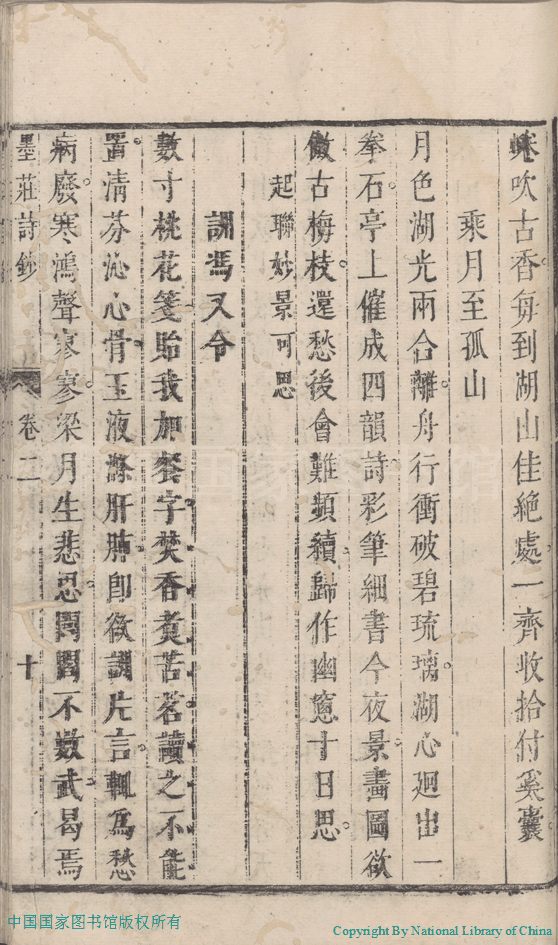 吹古香每到湖山佳絶處一齊收拾付奚囊
乘月至孤山
月色湖光兩合離舟行衝破碧琉璃湖心廻出一
拳石亭上催成四韻詩彩筆細書今夜景畫圖欲
倣古梅枝還愁後會難頻續歸作幽窻十日思
起聯妙景可思
詶馮又令
數寸桃花箋貽我加餐字焚香煑苦茗讀之不能
置清芬沁心骨玉液滌肝肺卽欲詶片言輒爲愁
病廢寒鴻聲寥寥梁月生悲思閶不數武曷焉
墨莊詩鈔
卷二
十
中国国家图书馆版权所有
Copyright By National Library of China